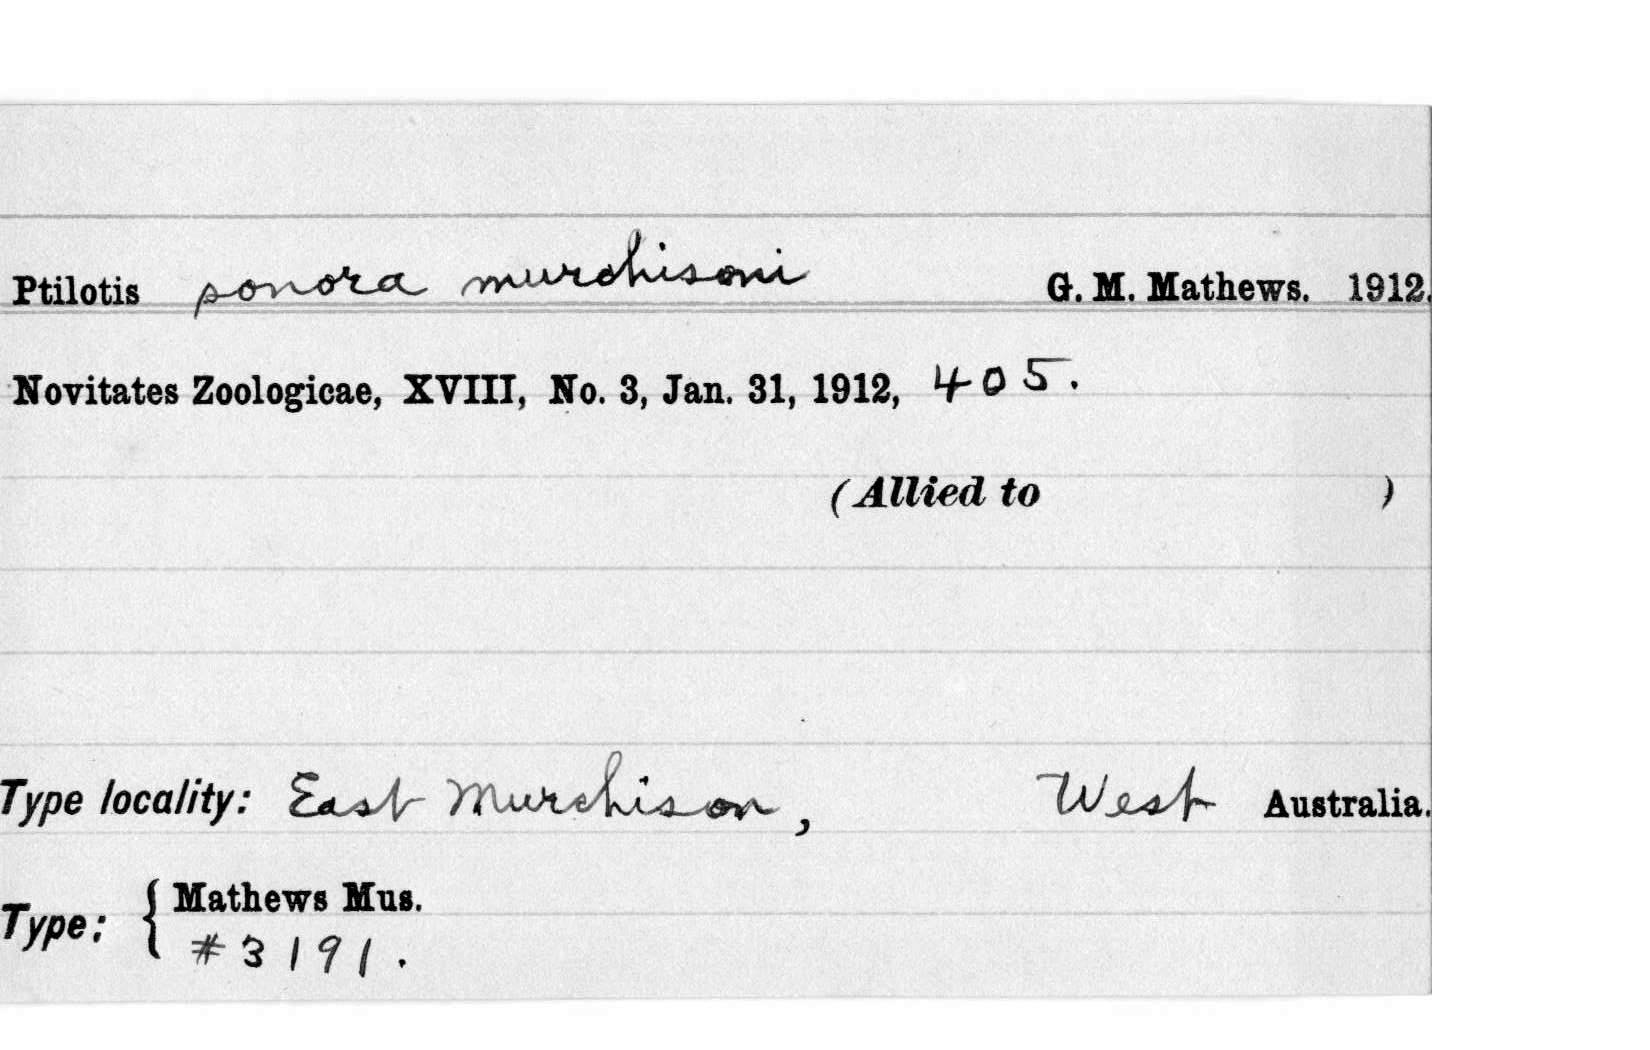 Ptilotis sonora murchisoni G. M. Mathews. 1912.
Novitates Zoologicae, XVIII, No. 3, Jan. 31, 1912, 405.
(Allied to )
Type locality: East Murchison, West Australia.
Type: { Mathews Mus.
#3191.